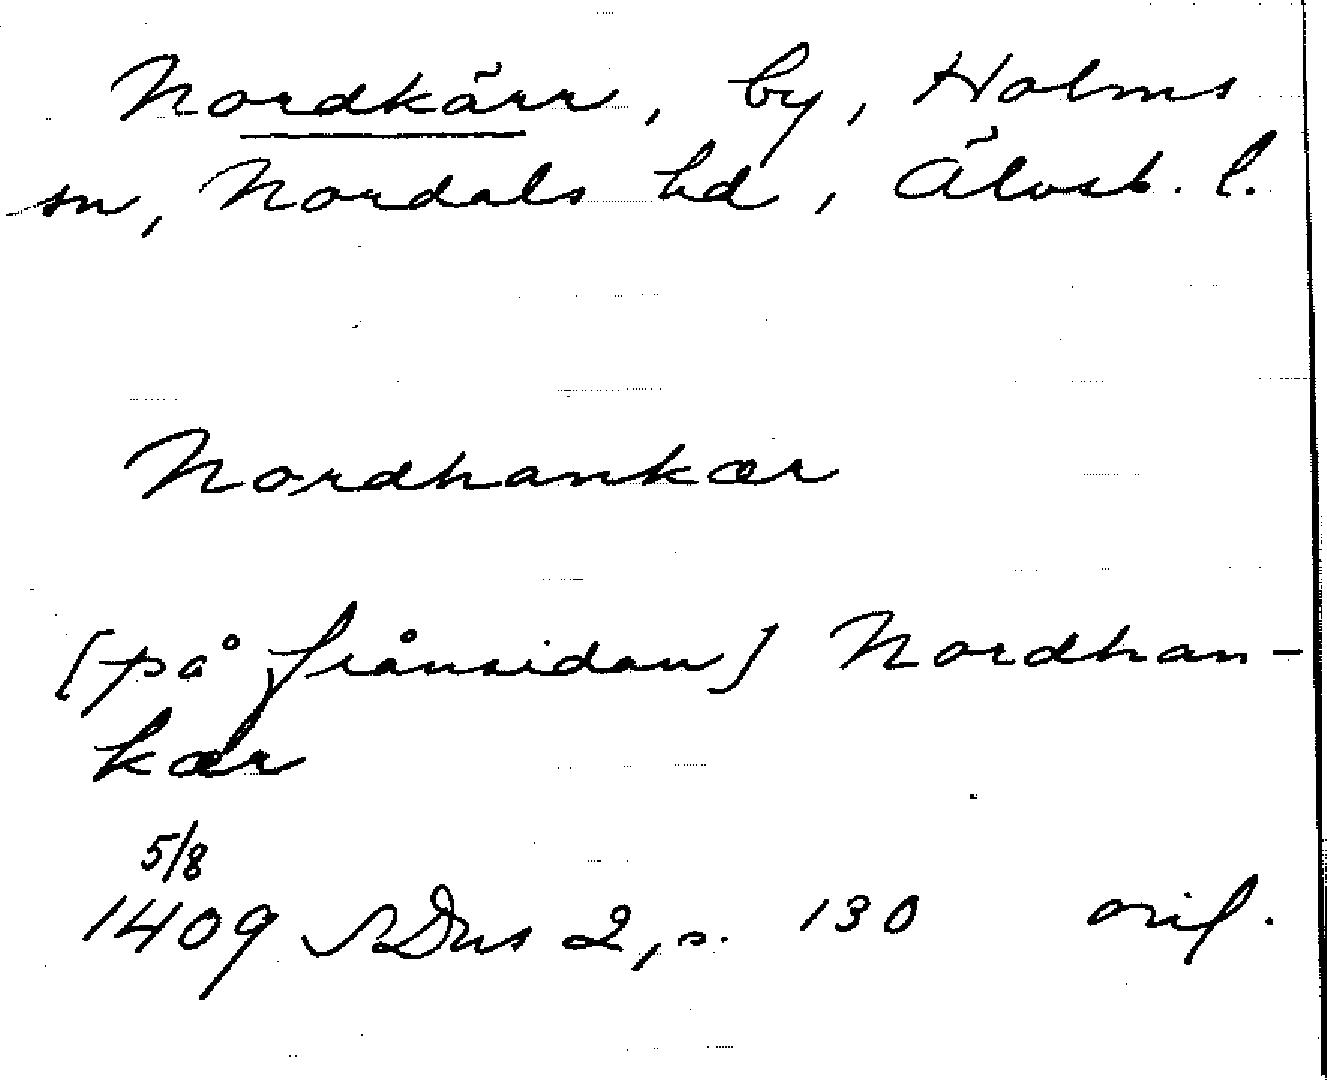 Nordkärr, by, Holms
sn, Nordals hd, Älvsb. l.
Nordhankær
[på frånsidan] Nordhan-
kær
5/8
1409 SDns 2, s. 130 orig.